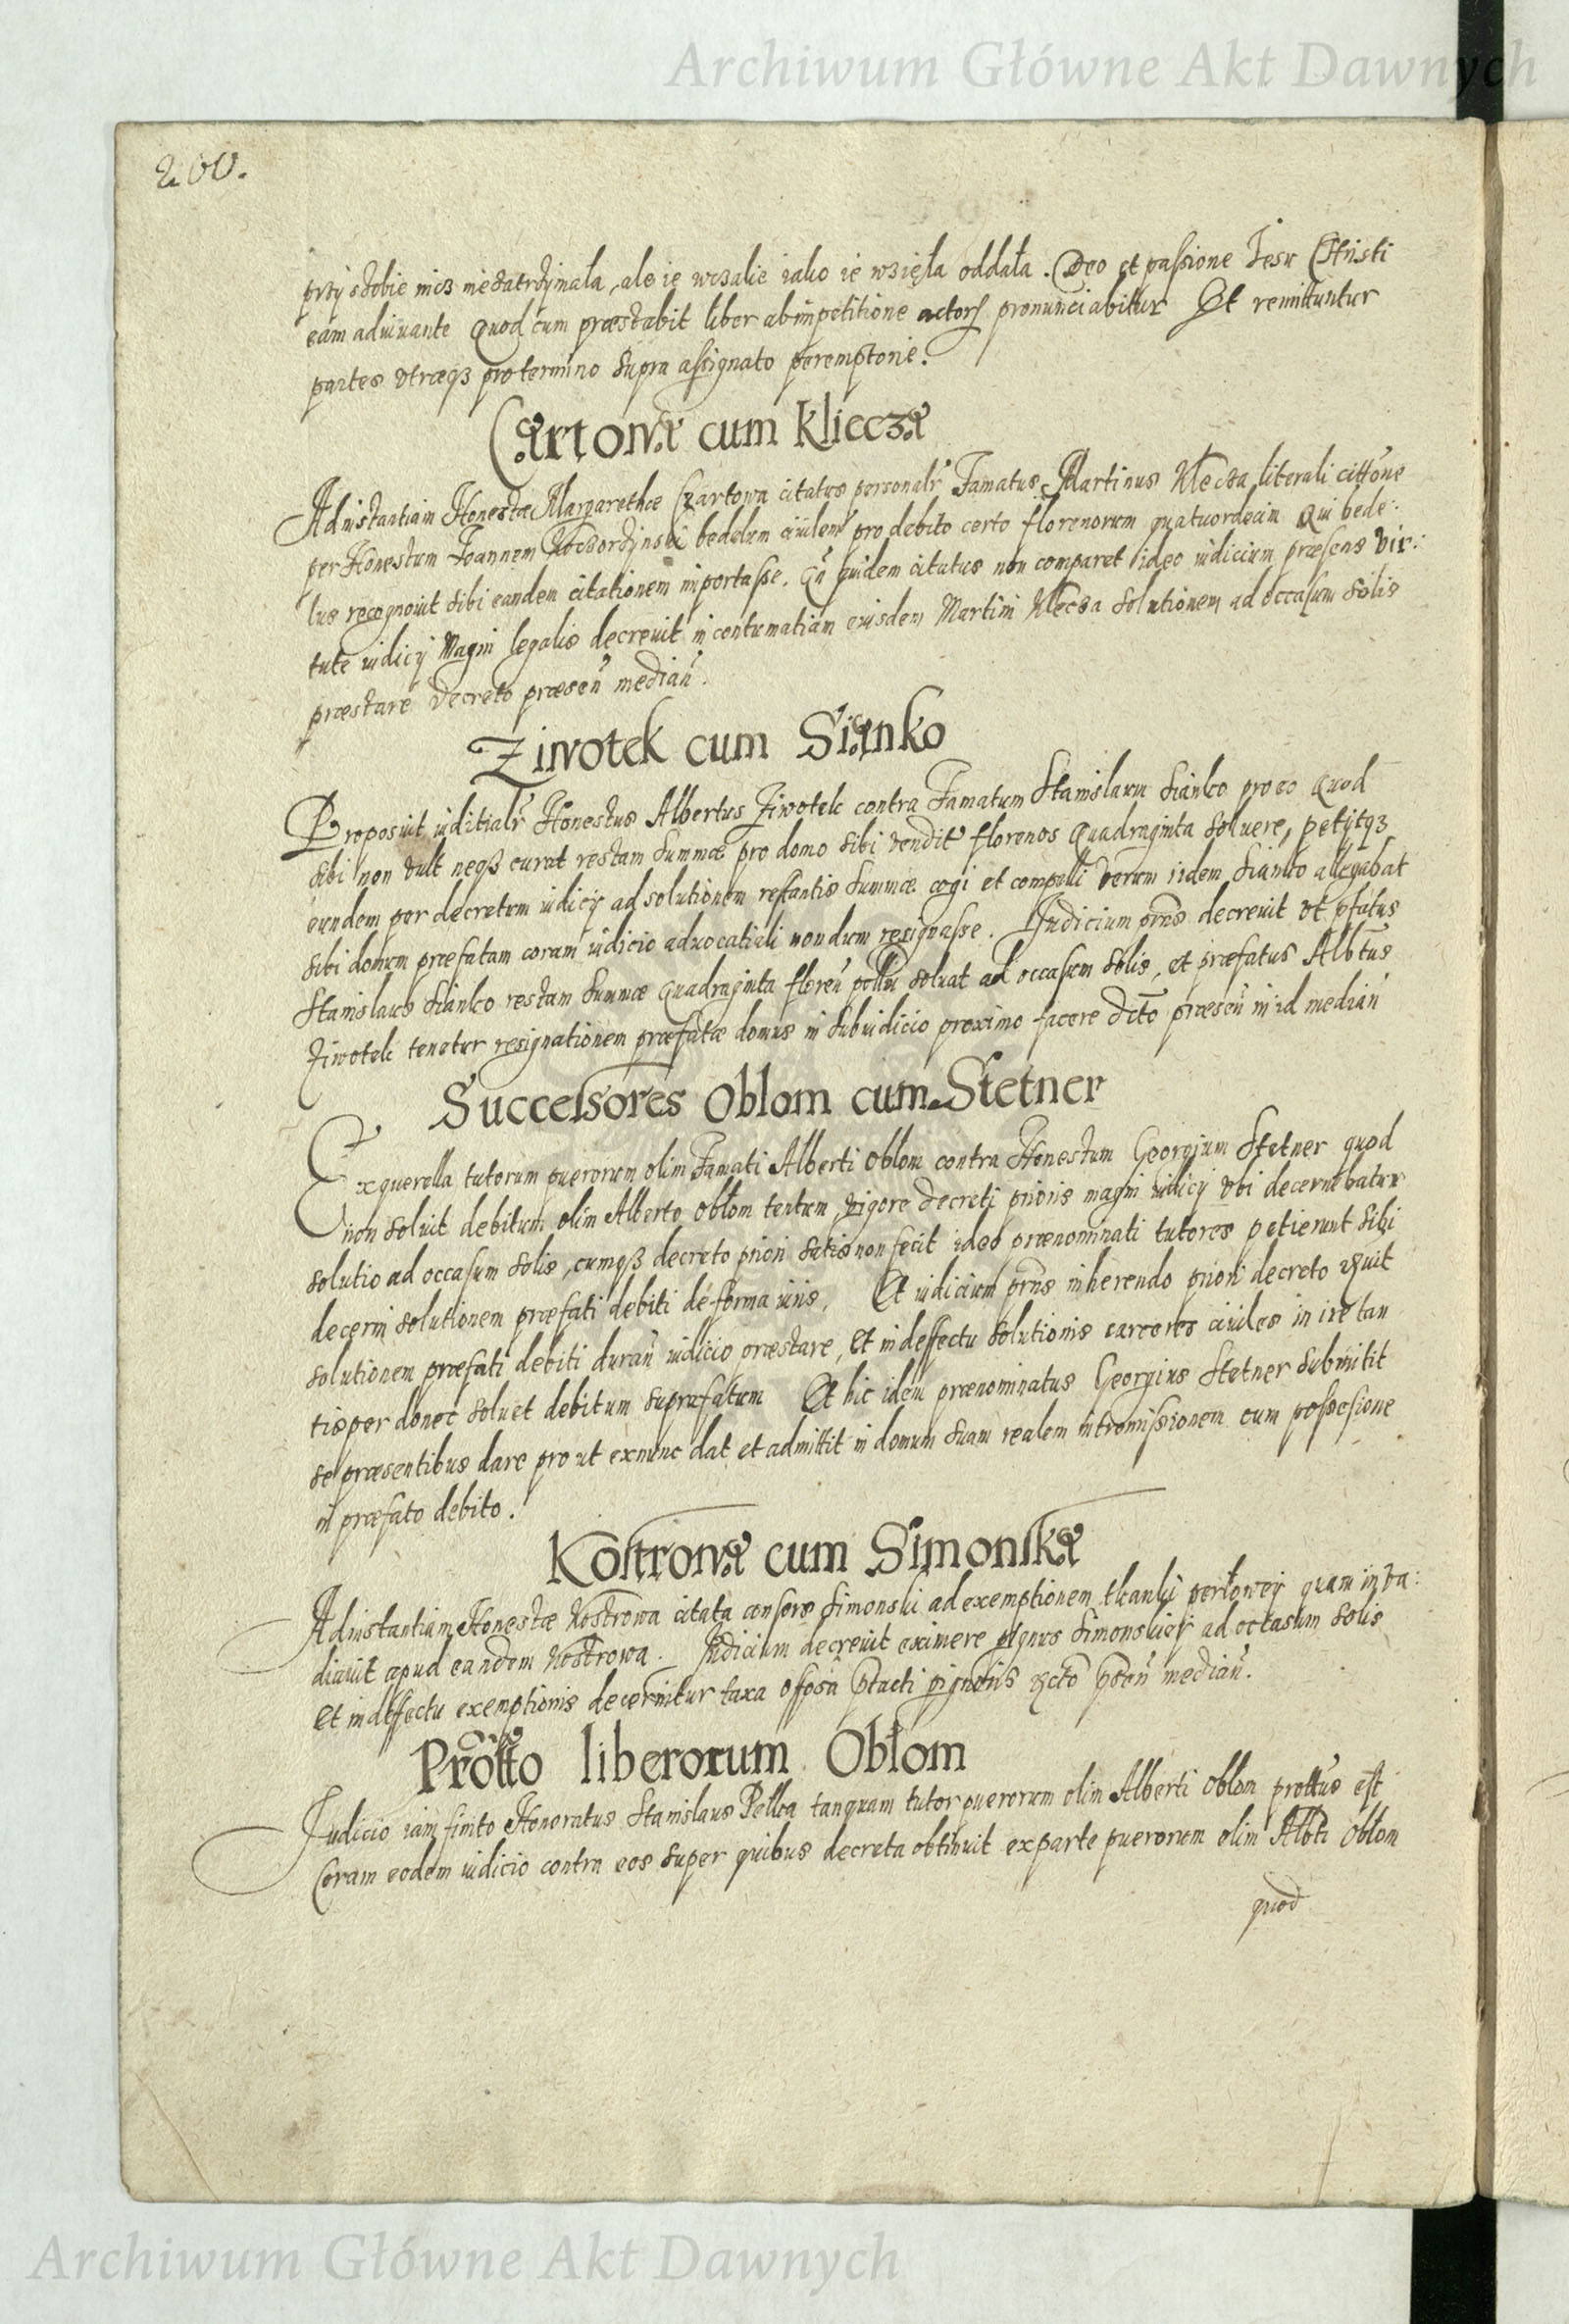 Archiwum Główne Akt Dawnych
200.
przÿ sobie nicz nie zatrzÿmala, ale ie wczalie iako ie wzięła oddała. Deo et passione Iesu Christi
eam adiuuante Quod cum præstabit liber ab impetitione actoris pronunciabitur Et remittuntur
partes vtræqꝫ pro termino supra assignato peremptorie.
Czartowa cum Kliecza
Ad instantiam Honestæ Margarethæ Czartowa citatus personalr Famatus Martinus Klecza literali cittõne
per Honestum Joannem bedelum ciuilem pro debito certo florenorum quatuordecim Qui bede:
lus recognouit sibi eandem citationem inportasse. Qa quidem citatus non comparet ideo iudicium præsens vir:
tute iudicÿ Magni legalis decreuit in contumatiam eiusdem Martini Klecza solutionem ad occasum solis
præstare decreto præsen median.
Ziwotek cum Sianko
Proposuit iuditialr Honestus Albertus Ziwotek contra Famatum Stanislaum Sianko pro eo Quod
sibi non vult neqꝫ curat restam summæ pro domo sibi vendit florenos Quadraginta soluere, petÿtqꝫ
eundem per decretum iudicÿ ad solutionem restantis summæ cogi et compelli verum iidem Sianko allegabat
sibi domum præfatam coram iudicio aduocatiali nondum resignasse. Judicium prñs decreuit vt pfatus
Stanislaus Sianko restam summæ Quadraginta floren pollu soluat ad occasum solis, et præfatus Albtus
Ziwotek tenetur resignationem præfatæ domus in subiudicio proximo facere dcto præsen in id median
Successores Oblom cum Stetner
Ex querella tutorum puerorum olim Famati Alberti Oblom contra Honestum Georgium Stetner quod
non soluit debitum olim Alberto Obłom tentum, vigore decreti prioris magni iudicÿ vbi decernebatur
solutio ad occasum solis, cumqꝫ decreto priori satis non fecit ideo prænominati tutores petierunt sibi
decerni solutionem præfati debiti de forma iuris. Et iudicium prñs inherendo priori decreto
solutionem præfati debiti duran iudicio præstare, Et in deffectu solutionis carceres ciuiles in ire tan
tisper donec soluet debitum suprafatum Et hic idem prænominatus Georgius Stetner submitit
se præsentibus dare pro ut exnunc dat et admittit in domum suam realem intromissionem cum possesione
in præfato debito.
Kostrowa cum Simonska
Ad instantiam Honestæ Kostrowa citata consors Simonski ad exemptionem tkanki perłowey quam in va:
diauit apud eandem Kostrowa. Judicium decreuit eximere pignus Simonskiey ad occasum solis
Et in deffectu exemptionis decernitur taxa offosa ptacti pignoris dcto psen median.
Protto liberorum Obłom
Judicio iam finito Honoratus Stanislaus Pella tanquam tutor puerorum olim Alberti Oblom prottus est
Coram eodem iudicio contra eos super quibus decreta obtinuit ex parte puerorum olim Albti Oblom
quod
Archiwum Główne Akt Dawnych